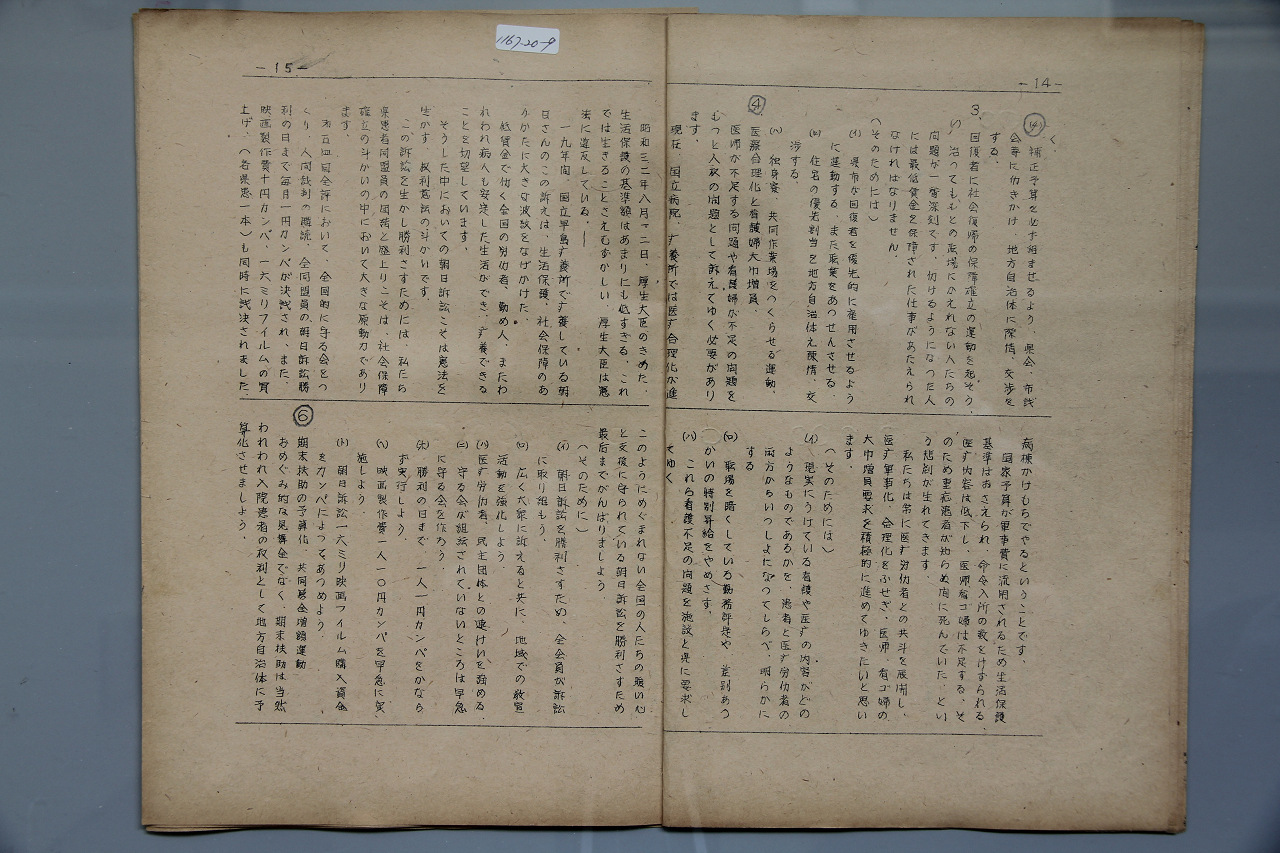 1167-20-9
-14-
く、
㈣ 補正予算を必ず組ませるよう、県会、市議
会等に仂きかけ、地方自治体に陳情、交渉を
する。
3、回復者に社会復帰の保障確立の運動を起そう、
い、治ってももとの職場にかえれない人たちの
問題が一番深刻です。仂けるようになった人
には最低賃金を保障された仕事があたえられ
なければなりません。
(そのためには)
(イ) 県市が回復者を優先的に雇用させるよう
に運動する、また職業をあつせんさせる、
(ロ) 住宅の優先割当を地方自治体え陳情、交
渉する
(ハ) 独身寮、共同作業場をつくらせる運動、
④ 医療合理化と看護婦大巾増員、
医師が不足する問題や看護婦が不足の問題を
もっと人权の問題として訴えてゆく必要があり
ます。
現在、国立病院、疒養所では医疒合理化が進
病棟かけもちでやるということです、
国家予算が軍事費に流用されるため生活保護
基準はおさえられ、命令入所の数をけずられる
医疒内容は低下し、医師看ゴ婦は不足する、そ
のため重症患者が知らぬ間に死んでいた、とい
う悲劇が生れてきます。
私たちは常に医疒労仂者との共斗を展開し、
医疒軍事化、合理化をふせぎ、医師、看ゴ婦の
大巾増員要求を積極的に進めてゆきたいと思い
ます。
(そのためには)
(イ) 現実にうけている看護や医疒の内容がどの
ようなものであるかを、患者と医疒労仂者の
両方からいつしよになつてしらべ、明らかに
する
(ロ) 職場を暗くしている勤務評定や、差別あつ
かいの特別昇給をやめさす、
(ハ) これら看護不足の問題を施設と県に要求し
てゆく
-15-
昭和三二年八月一二日、厚生大臣のきめた、
生活保護の基準額はあまりにも低すぎる、これ
では生きることさえむずかしい、厚生大臣は憲
法に違反している、——
一九年間、国立早島疒養所で疒養している朝
日さんのこの訴えは、生活保護、社会保障のあ
りかたに大きな波紋をなげかけた、
低賃金で仂く全国の労仂者、勤め人、またわ
れわれ病人も安定した生活ができ、疒養できる
ことを切望しています、
そうした中においての朝日訴訟こそは憲法を
生かす、权利憲法の斗かいです、
この訴訟を生かし勝利さすためには、私たち
県患者同盟員の団結と盛上りこそは、社会保障
確立の斗かいの中において大きな原動力であり
ます、
第五四回全評において、全国的に守る会をつ
くり、人間裁判の勝訴、全同盟員の朝日訴訟勝
利の日まで毎月一円カンパが決議され、また、
映画製作費十円カンパ、一六ミリフイルムの買
上げ、(各県患一本)も同時に議決されました、
このようにめぐまれない全国の人たちの暖い心
と支援に守られている朝日訴訟を勝利さすため
最后までがんばりましよう、
(そのために)
(イ) 朝日訴訟を勝利さすため、全会員が訴訟
に取り組もう、
(ロ) 広く大衆に訴えると共に、地域での教宣
活動を強化しよう、
(ハ) 医疒労仂者、民主団体との提けいを強める
(ニ) 守る会が組織されていないところは早急
に守る会を作ろう、
(ホ) 勝利の日まで、一人一円カンパをかなら
ず実行しよう、
(ヘ) 映画製作費一人一〇円カンパを早急に実
施しよう、
(ト) 朝日訴訟一六ミリ映画フイルム購入資金
をカンパによつてあつめよう、
⑥ 期末扶助の予算化、共同募金増額運動
おめぐみ的な見舞金でなく、期末扶助は当然
われわれ入院患者の权利として地方自治体に予
算化させましよう、